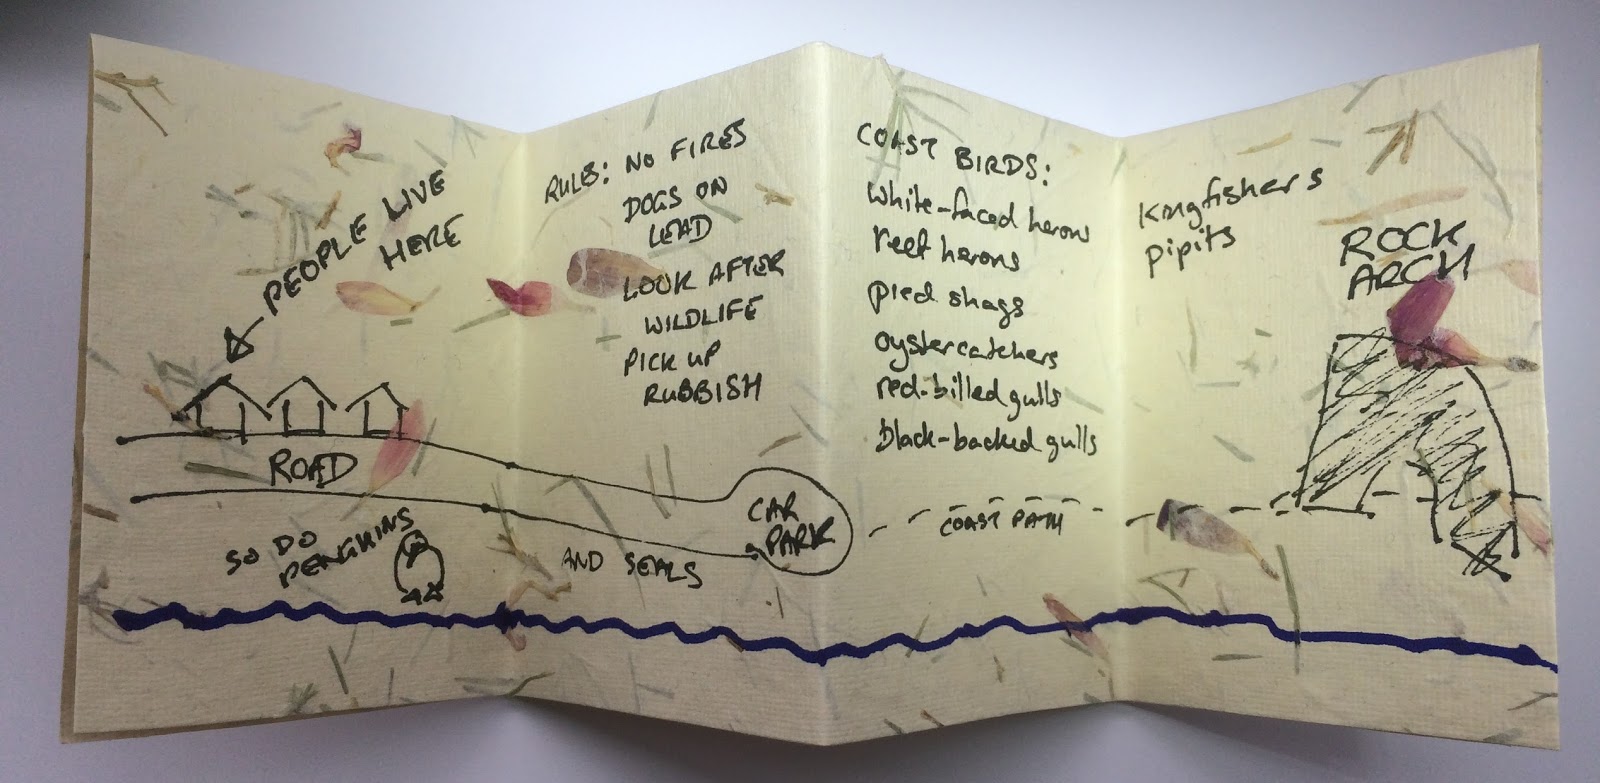 PEOPLE LIVE
HERE
ROAD
SO DO
PENGUINS
RULES: NO FIRES
DOGS ON
LEAD
LOOK AFTER
WILDLIFE
PICK UP
RUBBISH
AND SEALS
CAR
PARK
COAST BIRDS:
white-faced herons
reef herons
pied shags
oystercatchers
red-billed gulls
black-backed gulls
COAST PATH
kingfishers
pipits
ROCK
ARCH